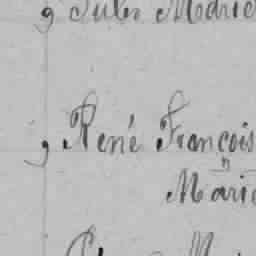 9 Jules Modric
9 René François
" Marie